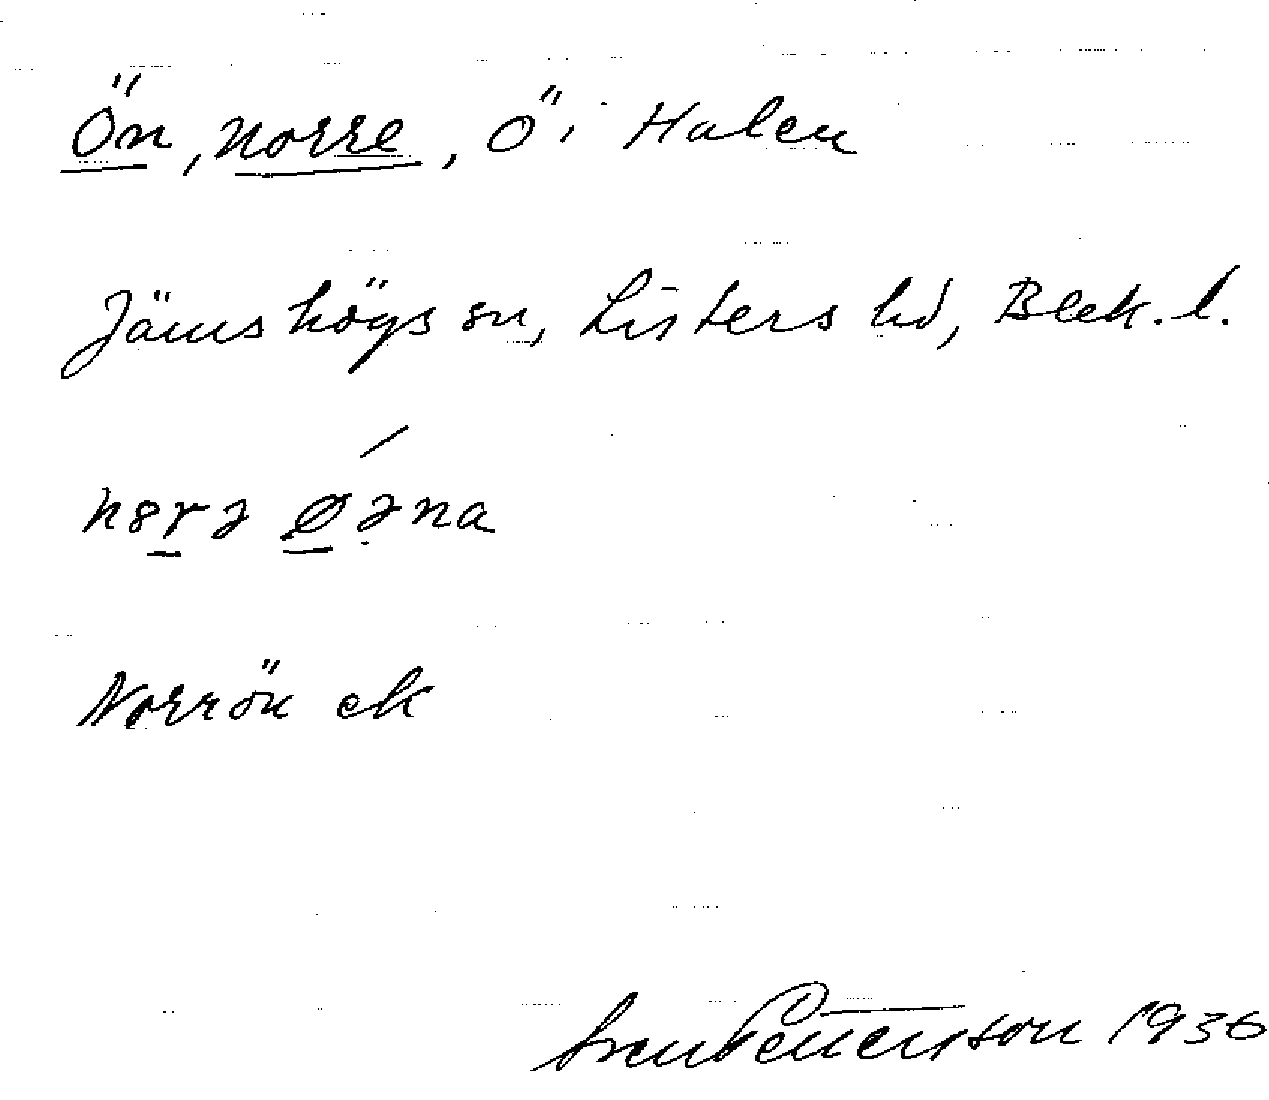 Ön, norre, ö i Halen
Jämshögs sn, Listers hd, Blek. l.
Norrön ek
Sven Pettersson 1936